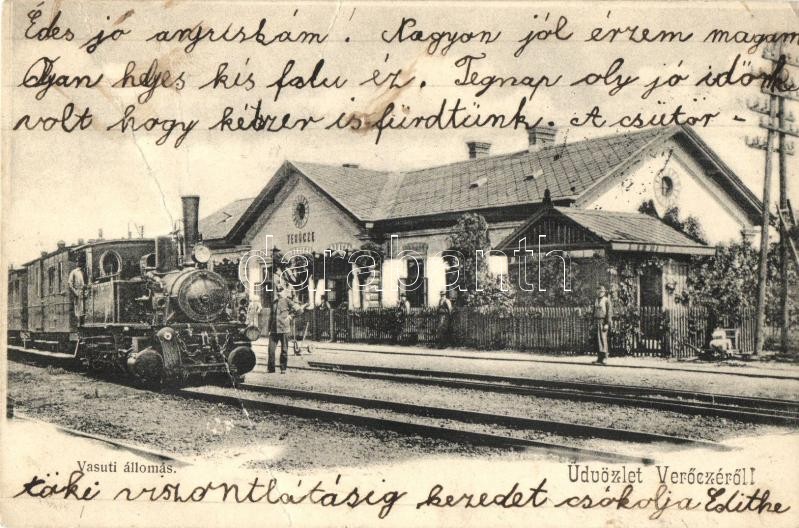 Édes jó anyuskám! Nagyon jól érzem magam
Olyan helyes kis falu éz. Tegnap oly jó időnk
volt hogy kétszer is fürdtünk. A csütör-
TERÓCZE
darabanth
Vasuti állomás.
Üdvözlet Verőczéről!
töki viszontlátásig kezedet csókolja Edithe